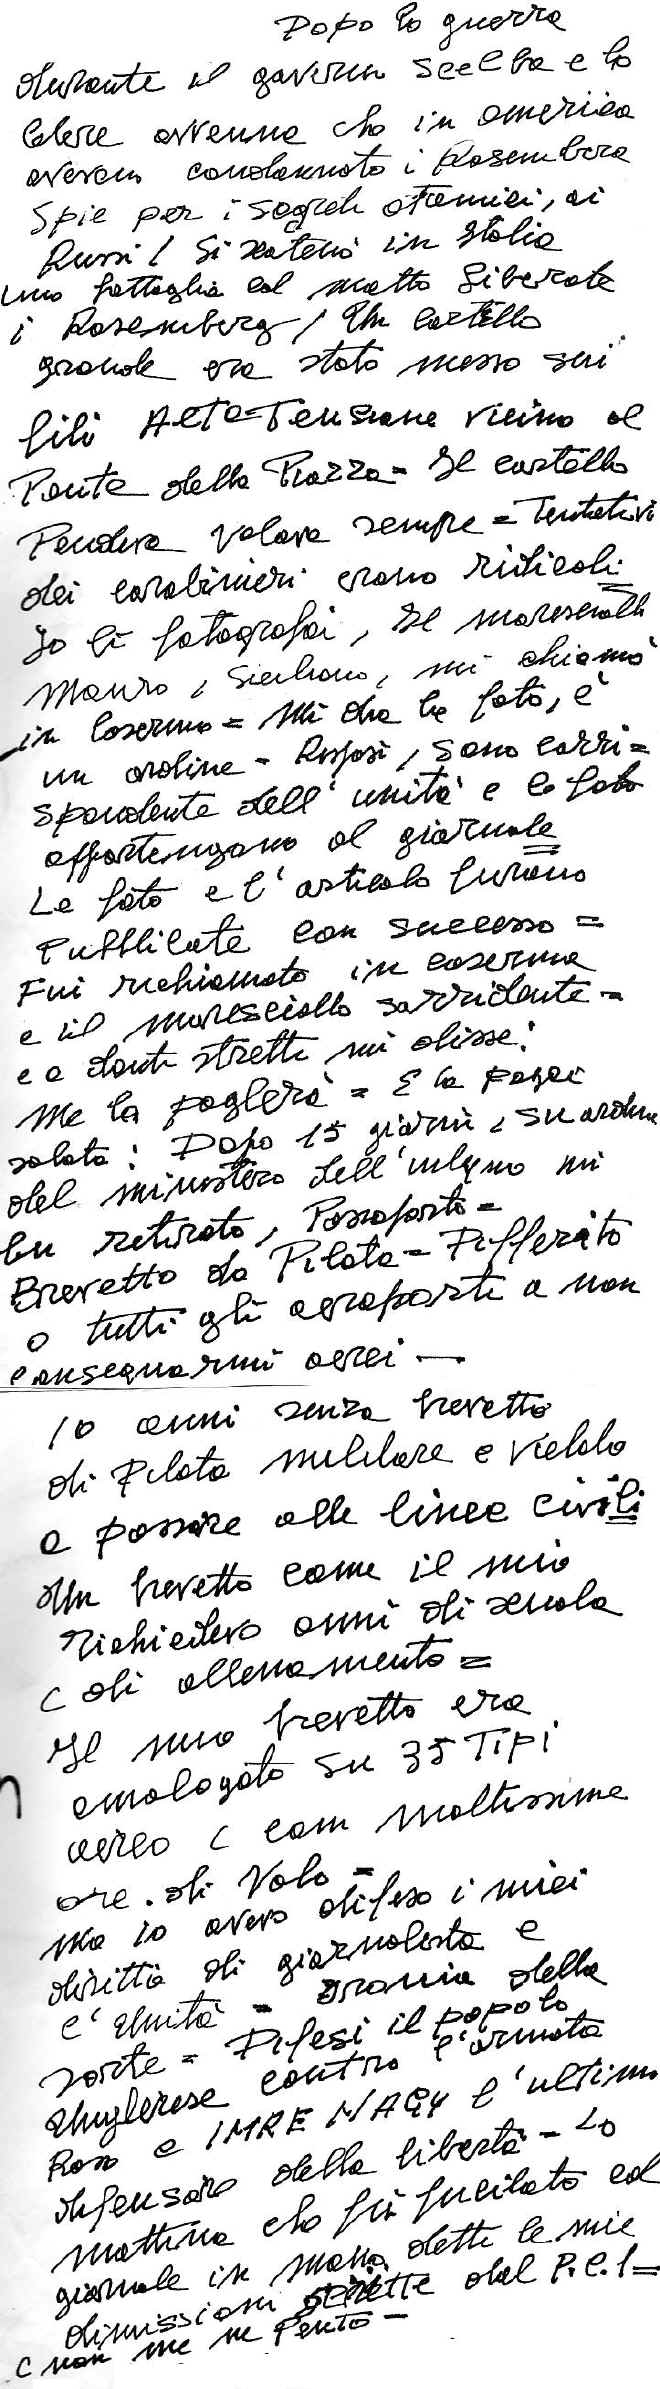 Dopo la guerra
durante il governo Scelba e la
Celere avvenne che in America
avevano condannato i Rosemberg
Spie per i segreti atomici, ai
Russi / Si scatenò in Italia
una battaglia col motto Liberate
i Rosemberg / Un cartello
grande era stato messo sui
fili Alta=Tensione vicino al
Ponte della Piazza= Il cartello
Pendeva volava sempre = Tentativi
dei carabinieri erano ridicoli
Io li fotografai, Il maresciallo
Mauro, Siciliano, mi chiamò
in Caserma = Mi dia le foto, è
un ordine - Risposi, sono corri=
spondente dell'unità e le foto
appartengono al giornale
Le foto e l'articolo furono
Pubblicate con successo =
Fui richiamato in caserma
e il maresciallo sorridente =
e a denti stretti mi disse:
Me la pagherà = E la pagai
salata: Dopo 15 giorni, su ordine
del ministero dell'interno mi
fu retirato, Passaporto =
Brevetto da Pilota = Differito
a tutti gli aeroporti a non
consegnarmi aerei —
10 anni senza brevetto
di Pilota militare e vietato
a passare alle linee civili
Un brevetto come il mio
richiedeva anni di scuola
e di allenamento =
Il mio brevetto era
omologato su 35 Tipi
aereo e com moltissime
ore di volo =
Ma io avevo difeso i miei
diritti di giornalista e
l'Unità = Ironia della
sorte = Difesi il popolo
Ungherese contro l'armata
Rossa e IMRE NAGY l'ultimo
difensore della libertà - La
mattina che fu fucilato col
giornale in mano detti le mie
dimissioni dal P.C.I =
e non me ne Pento -